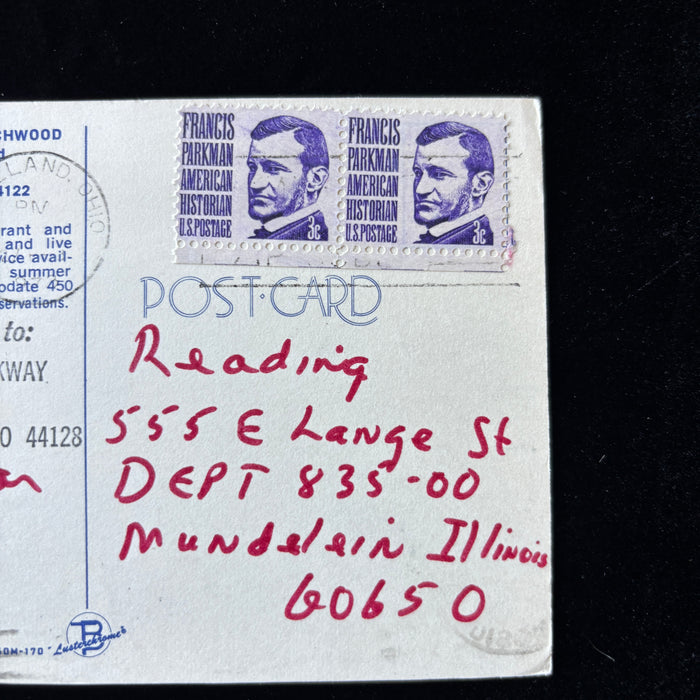 FRANCIS
PARKMAN
AMERICAN
HISTORIAN
U.S.POSTAGE 3c
FRANCIS
PARKMAN
AMERICAN
HISTORIAN
U.S.POSTAGE 3c
CHWOOD
LAND, OHIO
PM
4122
rant and
and live
vice avail-
summer
odate 450
servations.
to:
KWAY
O 44128
POST·CARD
Reading
555 E Lange St
DEPT 835-00
Mundelein Illinois
60650
Lusterchrome®